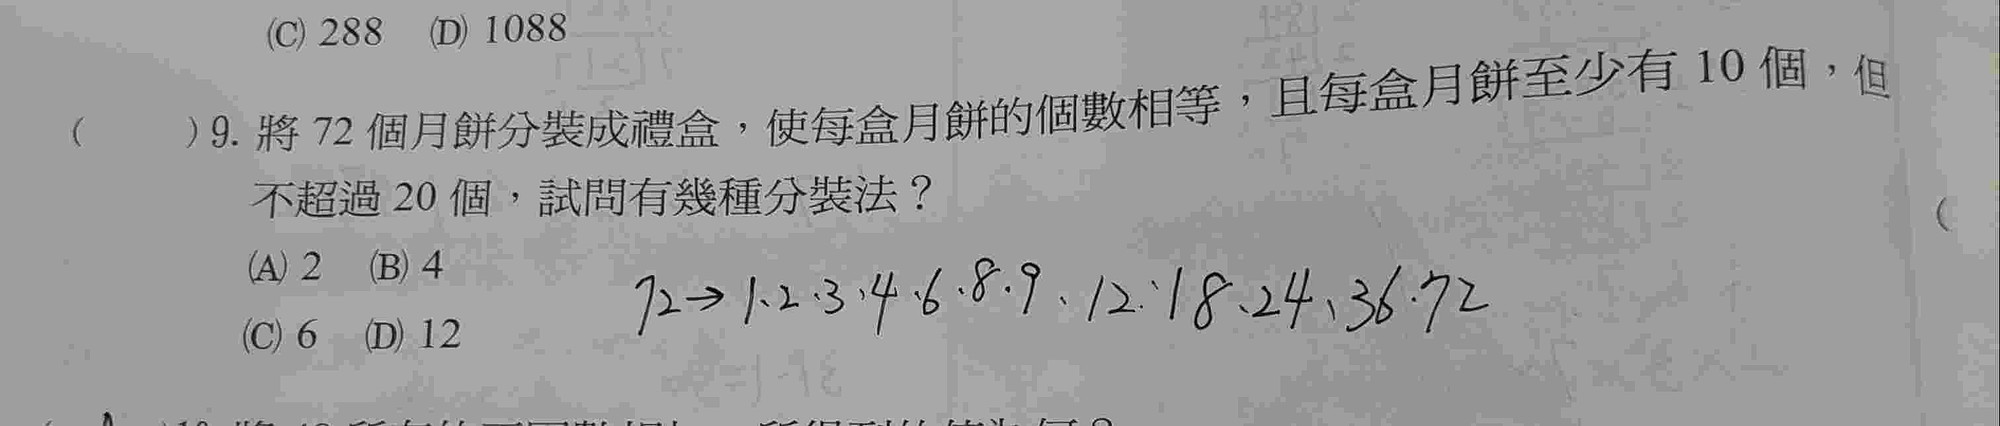 (C) 288 (D) 1088
( ) 9. 將 72 個月餅分裝成禮盒，使每盒月餅的個數相等，且每盒月餅至少有 10 個，但
不超過 20 個，試問有幾種分裝法？
(A) 2 (B) 4
(C) 6 (D) 12
72→1、2、3、4、6、8、9、12、18、24、36、72
(